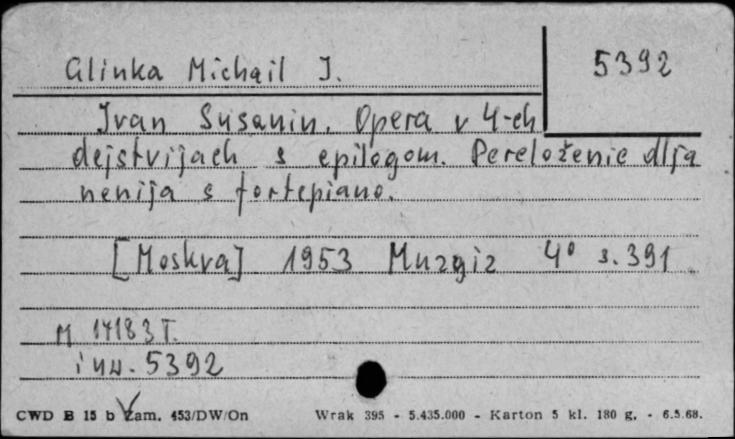 Glinka Michail J.
5392
Jvan Susanin. Opera v 4-ch
dejstvijach s epilogom. Pereloženie dlja
nenija s fortepiano.
[Moskva] 1953 Muzgiz 4° s. 391
M 17183 T.
inw. 5392
CWD B 15 b Zam. 453/DW/On Wrak 395 - 5.435.000 - Karton 5 kl. 180 g. - 6.5.68.